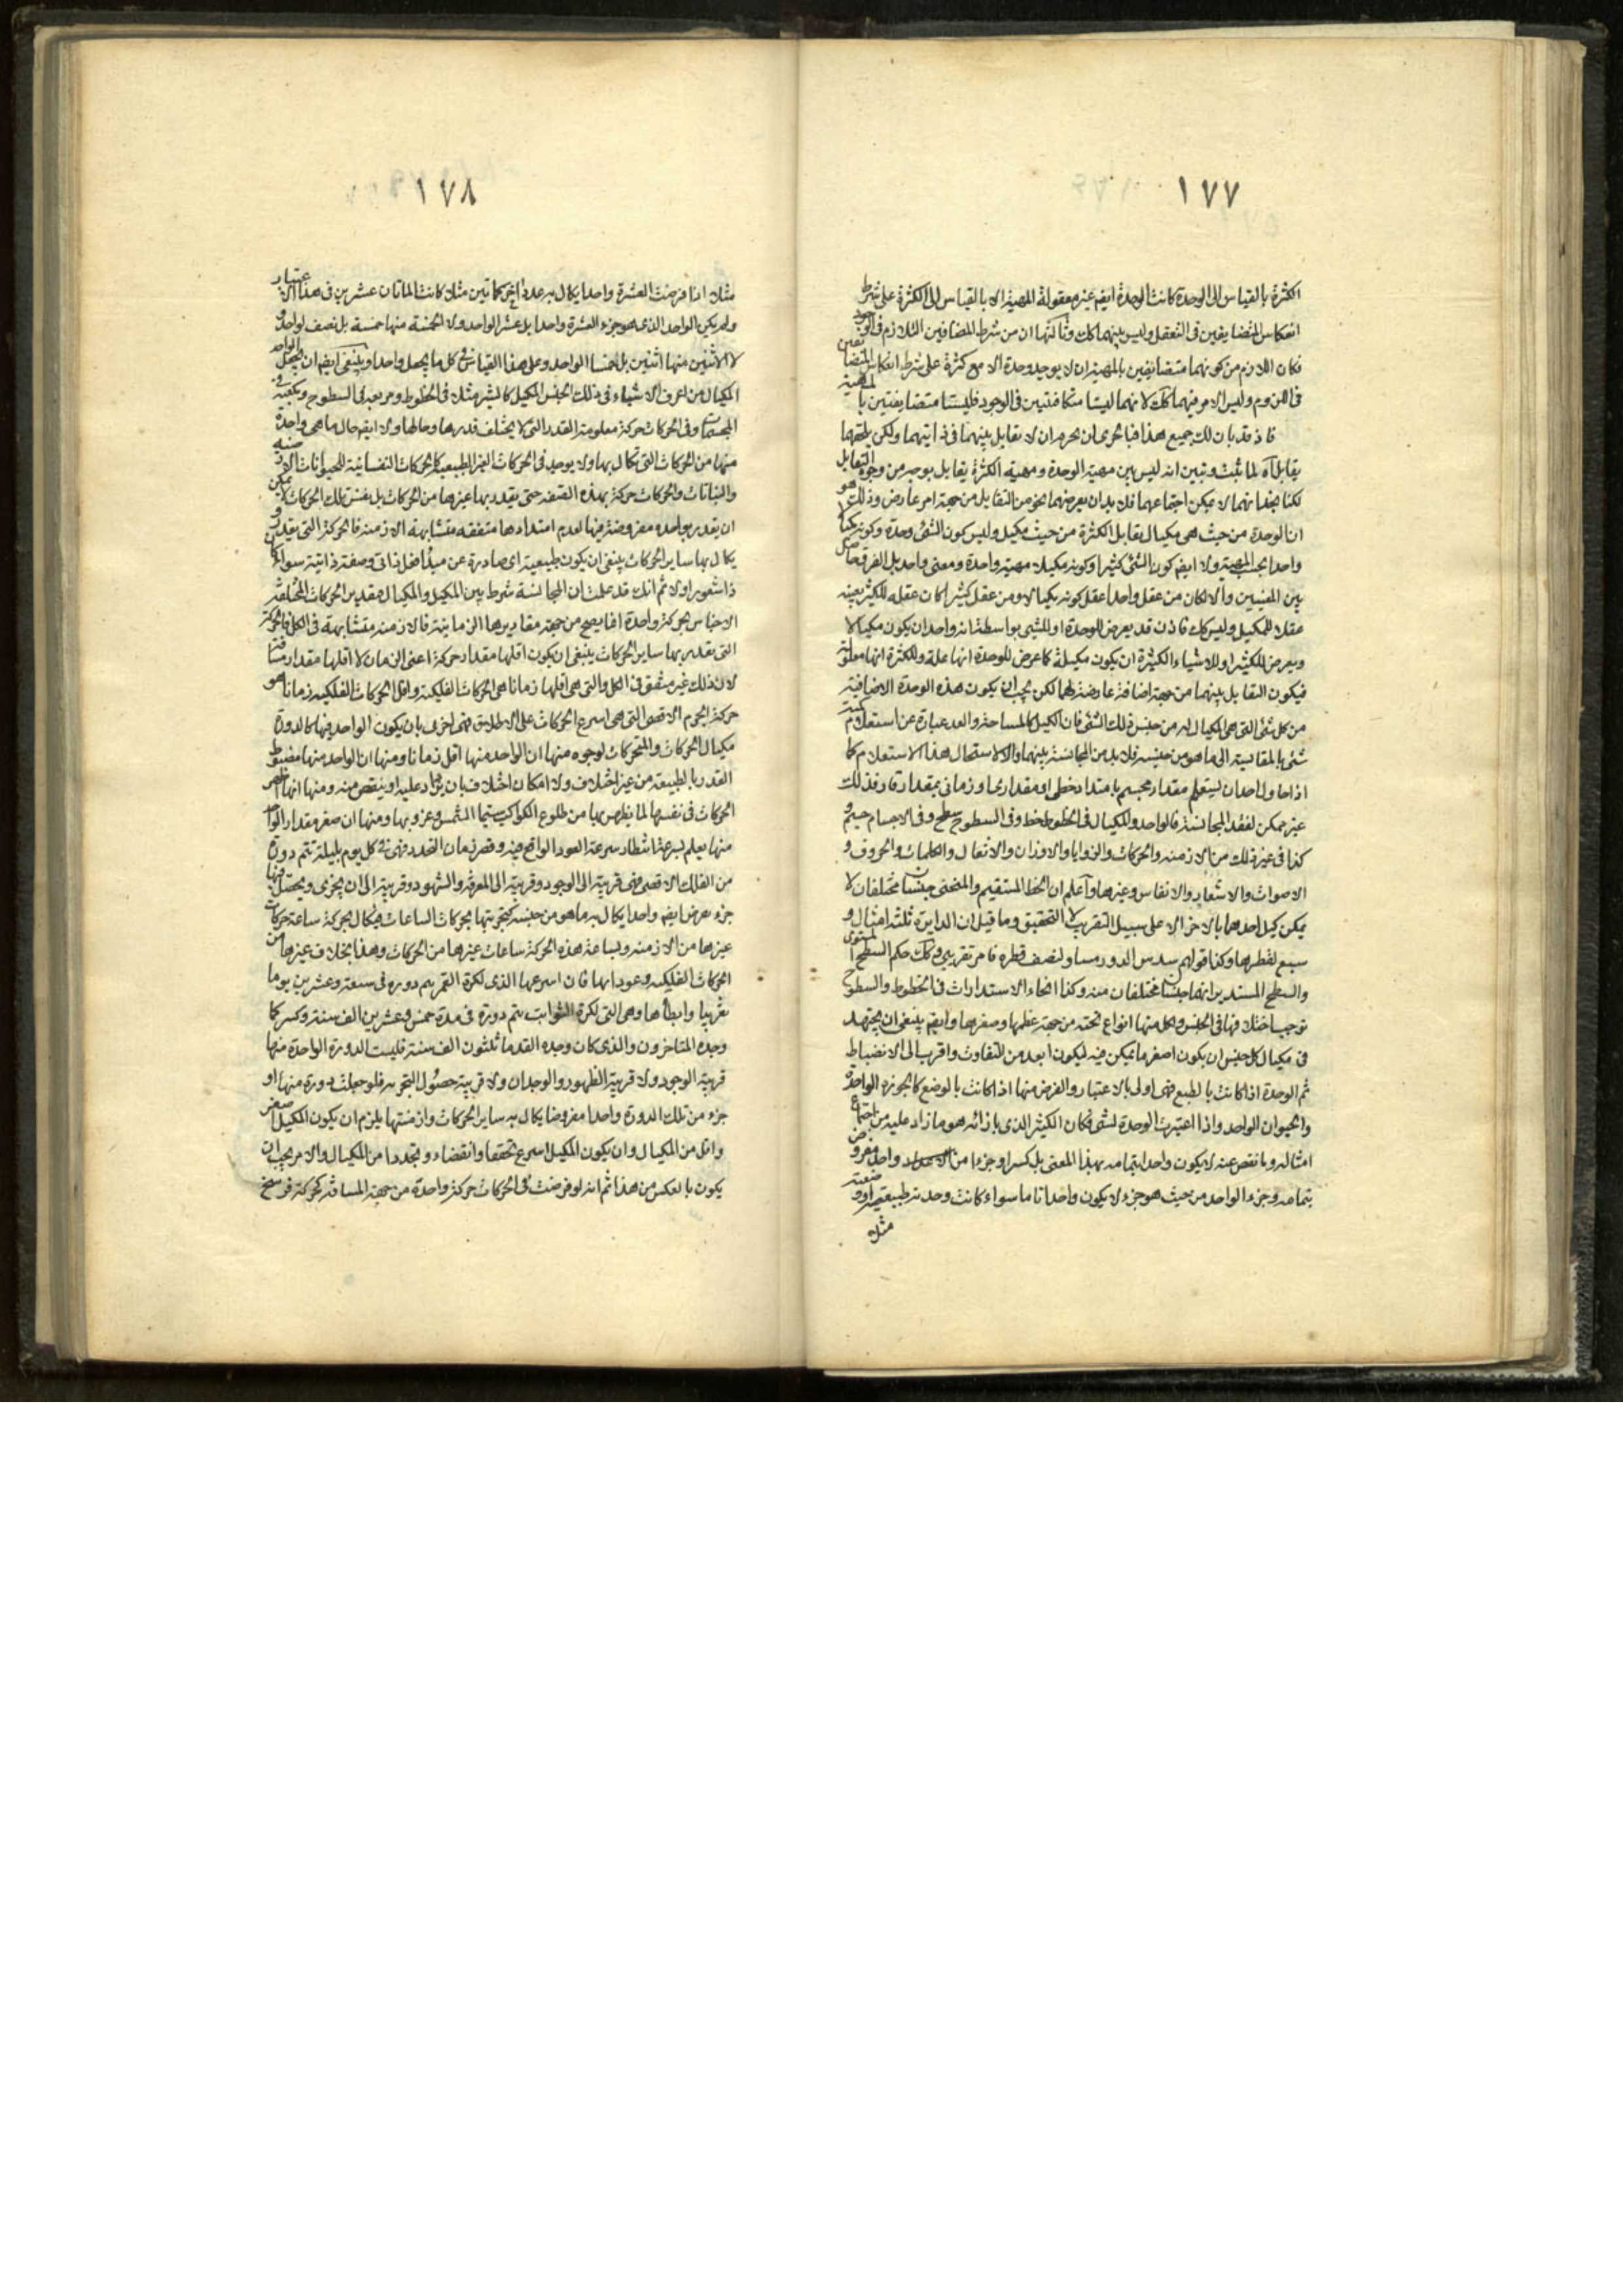 ١٧٧
الكثرة بالقياس الى الوحدة كانت الوحدة ايضم غير معقولة المهية الا بالقياس الى الكثرة على شرط
انعكاس المتضايفين فى التعقل وليس بينهما كك وثالثها ان من شرط المضافين التلازم فى الوجود
فكان اللازم من كونهما متضايفين بالمهية ان لا يوجد وحدة الا مع كثرة على شرط انعكاس المتضايفين
فى اللزوم وليس الامر فيهما كك لانهما ليستا متكافئتين فى الوجود فليستا متضايفتين بالمهية
فاذ قد بان لك جميع هذا فبالحرى ان يجزم ان لا تقابل بينهما فى ذاتيهما ولكن يلحقهما
تقابل لما ثبت وتبين انه ليس بين مهية الوحدة ومهية الكثرة تقابل بوجه من وجوه التقابل
لكنا بخفا انهما لا يمكن اجتماعهما فلا بد ان يعرضهما نحو من التقابل من جهة امر عارض وذلك هو
ان الوحدة من حيث هى مكيال تقابل الكثرة من حيث مكيل وليس كون الشئ وحدة وكونه مكيالا
واحدا بحسب المهية ولا ايضم كون الشئ كثيرا وكونه مكيلا مهية واحدة ومعنى واحد بل الفرق حاصل
بين المعنيين والا لكان من عقل واحدا عقل كونه مكيالا ومن عقل كثيرا كان عقله للكثير بعينه
عقلا للمكيل وليس كك فاذن قد يعرض للوحدة او للشئ بواسطة انه واحد ان يكون مكيالا
ويعرض للكثير او للاشياء الكثيرة ان يكون مكيلة كما عرض للوحدة انها علة وللكثرة انها معلولة
فيكون التقابل بينهما من جهة اضافة عارضة لهما لكن يجب ان يكون هذه الوحدة الاضافية
من كل شئ التى هى المكيال له من جنس ذلك الشئ فان الكيل كالمساحة والعد عبارة عن استعلام كمية
شئ بالمقايسة الى ما هو من جنسه فلا بد من المجانسة بينهما والا لاستحال هذا الاستعلام كما
اذا حاول احد ان يستعلم مقدار مجسم بامتداد خطى او مقدارى او زمانى بمقدار قار فذلك
غير ممكن لفقد المجانسة فالواحد والمكيال فى الخطوط خط وفى السطوح سطح وفى الاجسام جسم و
كذا فى غير ذلك من الازمنة والحركات والزوايا والاوزان والاثقال والكلمات والحروف و
الاصوات والاشعار والانفاس وغيرها واعلم ان الخط المستقيم والمنحنى جنسان مختلفان لا
يمكن كيل احدهما بالاخر الا على سبيل التقريب لا التحقيق وما قيل ان الدايرة ثلثة امثال و
سبع لقطرها وكذا قولهم سدس الدور مساو لنصف قطره فامر تقريبى وكك حكم السطح المستوى
والسطح المستدير انهما جنسان مختلفان منه وكذا انحاء الاستدارات فى الخطوط والسطوح
توجب اختلافها فى الجنس ولكل منها انواع تحته من جهة عظمها وصغرها وايضم ينبغى ان يجتهد
فى مكيال كل جنس ان يكون اصغر ما يمكن فيه ليكون ابعد من التفاوت واقرب الى الانضباط
ثم الوحدة اذا كانت بالطبع فهى اولى بالاعتبار والفرض منها اذا كانت بالوضع كالجوزة الواحدة
والحيوان الواحد واذا اعتبرت الوحدة لشئ فكان الكثير الذى بازائه هو ما زاد عليه من اجتماع
امثاله وما نقص عنه لا يكون واحدا بتمامه بهذا المعنى بل كسرا وجزءا من واحد مفروض
بتمامه وجزء الواحد من حيث هو جزء لا يكون واحدا تاما سواء كانت وحدته طبيعية او وضعية
مثلا
١٧٨
مثلا اذا فرضت العشرة واحدا يكال به عدد اخر كماتين مثلا كانت الماتان عشرين فى هذا الاعتبار
ولم يكن الواحد الذى هو جزء العشرة واحدا بل عشر الواحد ولا الخمسة منها خمسة بل نصف لواحد و
لا الاثنين منها اثنين بل خمسا الواحد وعلى هذا القياس فى كل ما يجعل واحدا وينبغى ايضم ان يجعل الواحد
المكيال من اعرف الاشياء فى ذلك الجنس المكيل كالشبر مثلا فى الخطوط ومربعه فى السطوح ومكعبه فى
المجسمات وفى الحركات حركة معلومة القدر التى لا يختلف قدرها وحالها ولا ايضم حال ما هى واحدة
منها من الحركات التى تكال بها ولا يوجد فى الحركات الغير الطبيعية كالحركات النفسانية للحيوانات الارضية
والنباتات والحركات حركة بهذه الصفة حتى يقدر بها غيرها من الحركات بل نفس تلك الحركات لا يمكن
ان يقدر بواحده مفروضة فيها لعدم امتدادها متفقة متشابهة الازمنة فالحركة التى يقدر و
يكال بها ساير الحركات ينبغى ان يكون طبيعية اى صادرة عن مبدأ فعل ذاتى وصفة ذاتية سواء كان
ذا شعور اولا ثم انك قد علمت ان المجانسة شرط بين المكيل والمكيال فتقدير الحركات المختلفة
الاجناس بحركة واحدة انما يصح من جهة مقاديرها الزمانية فالازمنة متشابهة فى الكل فالحركة
التى يقدر بها ساير الحركات ينبغى ان يكون اقلها مقدار حركة اعنى الزمان لا اقلها مقدار مسافة
لان ذلك غير متفق فى الكل والتى هى اقلها زمانا هى الحركات الفلكية واقل الحركات الفلكية زمانا هو
حركة الجرم الاقصى التى هى اسرع الحركات على الاطلاق فهى احرى بان يكون الواحد فيها كالدورة
مكيال الحركات والمتحركات لوجوه منها ان الواحد منها اقل زمانا ومنها ان الواحد منها مضبوط
القدر بالطبيعة من غير اختلاف ولا امكان اختلاف بان يزاد عليه او ينقص منه ومنها انها اظهر
الحركات فى نفسها لما يظهر بها من طلوع الكواكب سيما الشمس وغروبها ومنها ان صغر مقدار الواحد
منها يعلم بسرعة انتظار سرعة العود الواقع فيه وقصر زمان التجدد فهى فى كل يوم بليلته تتم دورة
من الفلك الاقصى فهى قريبة الى الوجود وقريبة الى المعرفة والشهود وقريبة الى ان يجزى ويحصل منها
جزء يعرض ايضم واحدا يكال به ما هو من جنسه كتجزيتها بحركات الساعات فيكال بحركة ساعة حركات
غيرها من الازمنة وبساعة هذه الحركة ساعات غيرها من الحركات وهذا بخلاف غيرها من
الحركات الفلكية وعوداتها فان اسرعها الذى لكرة القمر يتم دوره فى سبعة وعشرين يوما
تقريبا وابطأها وهى التى لكرة الثوابت يتم دورة فى مدة خمس وعشرين الف سنة وكسر كما
وجده المتاخرون والذى كان وجده القدما ثلثون الف سنة فليست الدورة الواحدة منها
قريبة الوجود ولا قريبة الظهور والوجدان ولا قريبة حصول التجربه فلو جعلت دورة منها او
جزء من تلك الدورة واحدا مفروضا يكال به ساير الحركات وازمنتها يلزم ان يكون المكيل اصغر
واقل من المكيال وان يكون المكيل اسرع تحققا وانقضاء وتجددا من المكيال والامر يجب ان
يكون بالعكس من هذا ثم انه لو فرضت فى الحركات حركة واحدة من جهة المسافة كحركة فرسخ